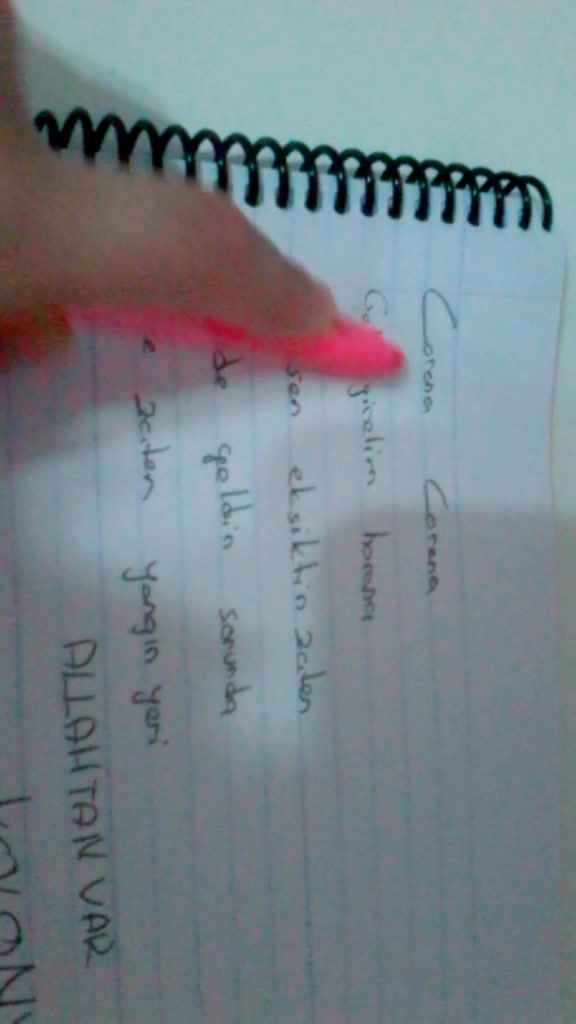 Corona Corona
girelim horona
sen eksiktin zaten
de geldin sonunda
e zaten yangın yeri
ALLAHTAN VAR